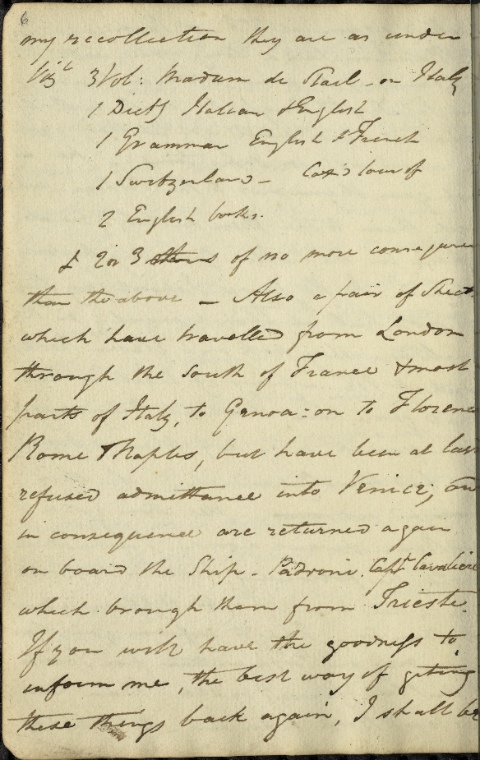 6
my recollection they are as under
Vizt 3 Vol: Madam de Stael - on Italy
1 Dicty Italian & English
1 Grammar English & French
1 Switzerland - Cox's tour of
2 English books.
& 2 or 3 others of no more consequence
than the above - Also a pair of Sheets
which have travelled from London
through the South of France & most
parts of Italy, to Genoa: on to Florence
Rome & Naples, but have been at last
refused admittance into Venice; and
in consequence are returned again
on board the Ship - Padroni. Capt. Cavaliere
which brough them from Trieste.
If you will have the goodness to
inform me, the best way of geting
these things back again, I shall be